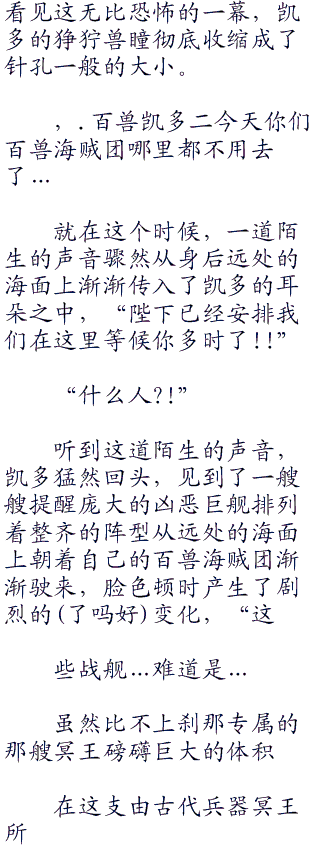 看见这无比恐怖的一幕，凯
多的狰狞兽瞳彻底收缩成了
针孔一般的大小。
，．百兽凯多二今天你们
百兽海贼团哪里都不用去
了…
就在这个时候，一道陌
生的声音骤然从身后远处的
海面上渐渐传入了凯多的耳
朵之中，“陛下已经安排我
们在这里等候你多时了!!”
“什么人?!”
听到这道陌生的声音，
凯多猛然回头，见到了一艘
艘提醒庞大的凶恶巨舰排列
着整齐的阵型从远处的海面
上朝着自己的百兽海贼团渐
渐驶来，脸色顿时产生了剧
烈的(了吗好)变化，“这
些战舰…难道是…
虽然比不上刹那专属的
那艘冥王磅礴巨大的体积
在这支由古代兵器冥王
所